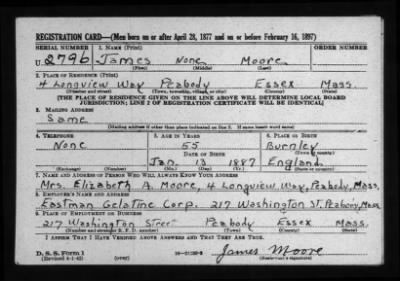 REGISTRATION CARD—(Men born on or after April 28, 1877 and on or before February 16, 1897)
SERIAL NUMBER 1. NAME (Print) ORDER NUMBER (Print)
U. 2796 James None Moore
(First) (Middle) (Last)
2. PLACE OF RESIDENCE (Print)
4 Longview Way Peabody Essex Mass.
(Number and street) (Town, township, village, or city) (County) (State)
[THE PLACE OF RESIDENCE GIVEN ON THE LINE ABOVE WILL DETERMINE LOCAL BOARD
JURISDICTION; LINE 2 OF REGISTRATION CERTIFICATE WILL BE IDENTICAL]
3. MAILING ADDRESS
Same
[Mailing address if other than place indicated on line 2. If same insert word same]
4. TELEPHONE 5. AGE IN YEARS 6. PLACE OF BIRTH
None 55 Burnley
DATE OF BIRTH (Town or county)
Jan. 13 1887 England.
(Exchange) (Number) (Mo.) (Day) (Yr.) (State or country)
7. NAME AND ADDRESS OF PERSON WHO WILL ALWAYS KNOW YOUR ADDRESS
Mrs. Elizabeth A. Moore, 4 Longview Way, Peabody, Mass.
8. EMPLOYER'S NAME AND ADDRESS
Eastman Gelatine Corp. 217 Washington St. Peabody, Mass
9. PLACE OF EMPLOYMENT OR BUSINESS
217 Washington Street Peabody Essex Mass.
(Number and street or R. F. D. number) (Town) (County) (State)
I AFFIRM THAT I HAVE VERIFIED ABOVE ANSWERS AND THAT THEY ARE TRUE.
D. S. S. Form 1
(Revised 4-1-42) (over) James Moore
(Registrant's signature)